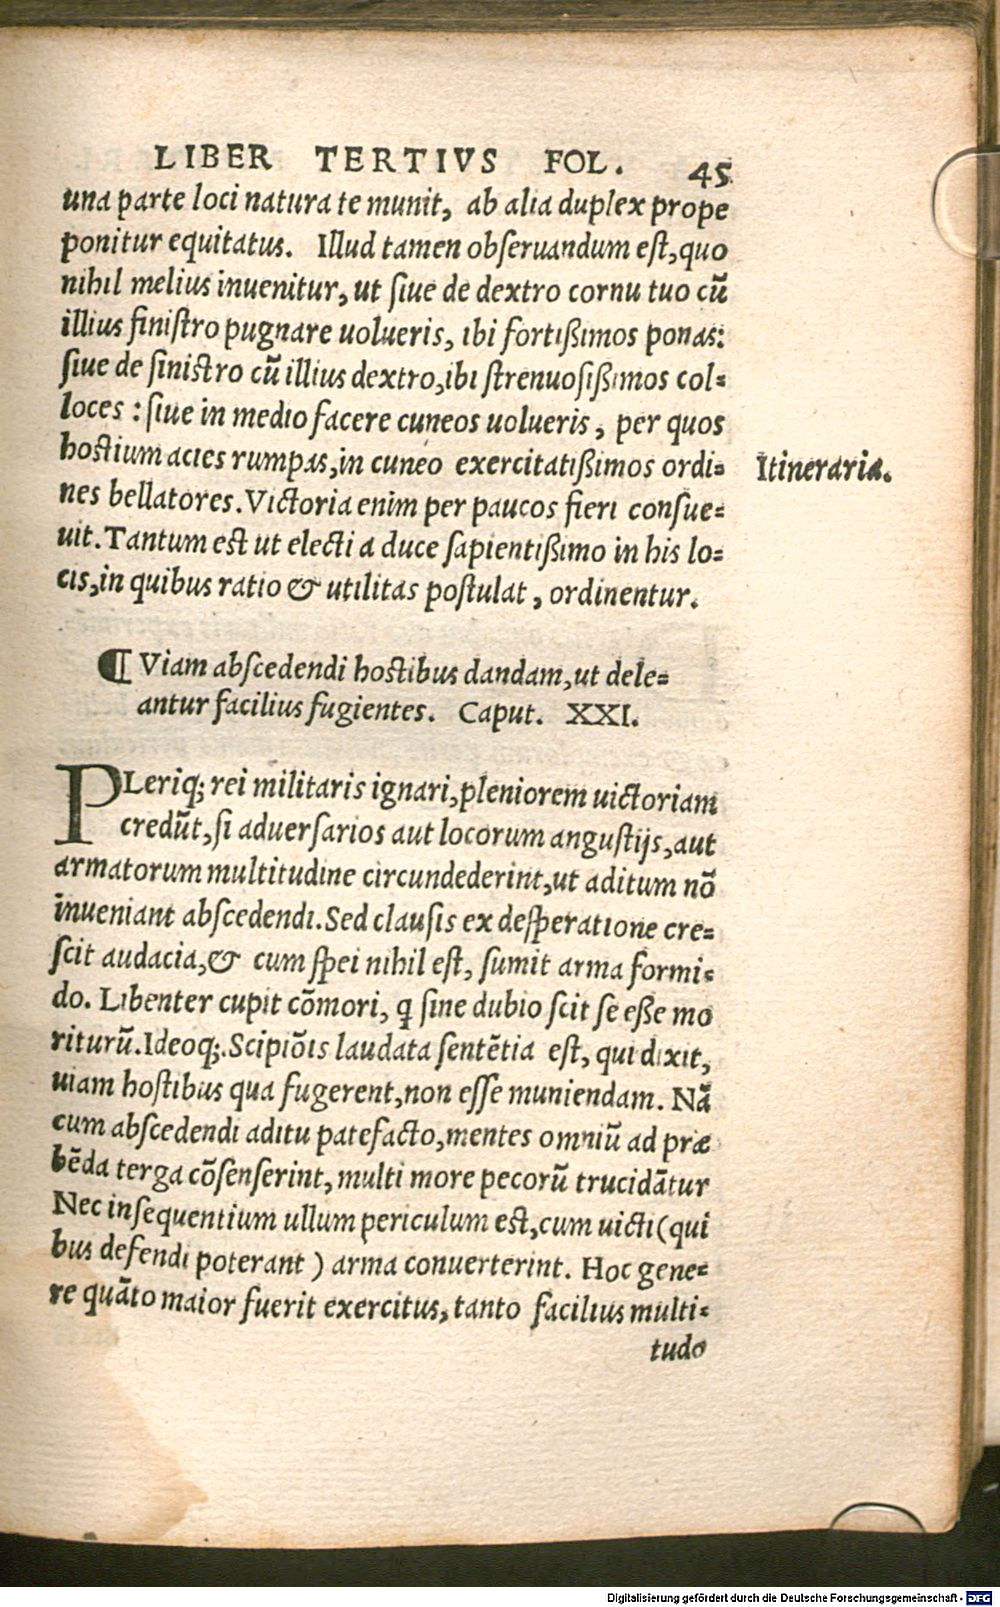 LIBER TERTIVS FOL. 45
una parte loci natura te munit, ab alia duplex prope
ponitur equitatus. Illud tamen obſeruandum eſt, quo
nihil melius inuenitur, ut ſiue de dextro cornu tuo cũ
illius ſiniſtro pugnare uolueris, ibi fortißimos ponas:
ſiue de ſiniſtro cũ illius dextro, ibi ſtrenuoſißimos col-
loces : ſiue in medio facere cuneos uolueris, per quos
hoſtium acies rumpas, in cuneo exercitatißimos ordi-
Itineraria.
nes bellatores. Victoria enim per paucos fieri conſue-
uit. Tantum eſt ut electi a duce ſapientißimo in his lo-
cis, in quibus ratio & utilitas poſtulat, ordinentur.
¶ Viam abſcedendi hoſtibus dandam, ut dele-
antur facilius fugientes. Caput. XXI.
PLeriq; rei militaris ignari, pleniorem uictoriam
credũt, ſi aduerſarios aut locorum anguſtijs, aut
armatorum multitudine circundederint, ut aditum nõ
inueniant abſcedendi. Sed clauſis ex deſperatione cre-
ſcit audacia, & cum ſpei nihil eſt, ſumit arma formi-
do. Libenter cupit cõmori, ꝗ ſine dubio ſcit ſe eße mo
riturũ. Ideoq;. Scipiõis laudata ſentẽtia eſt, qui dixit,
uiam hoſtibus qua fugerent, non eſſe muniendam. Nã
cum abſcedendi aditu patefacto, mentes omniũ ad præ
bẽda terga cõſenſerint, multi more pecorũ trucidãtur
Nec inſequentium ullum periculum eſt, cum uicti (qui
bus defendi poterant) arma conuerterint. Hoc gene-
re quãto maior fuerit exercitus, tanto facilius multi-
tudo
Digitalisierung gefördert durch die Deutsche Forschungsgemeinschaft - DFG